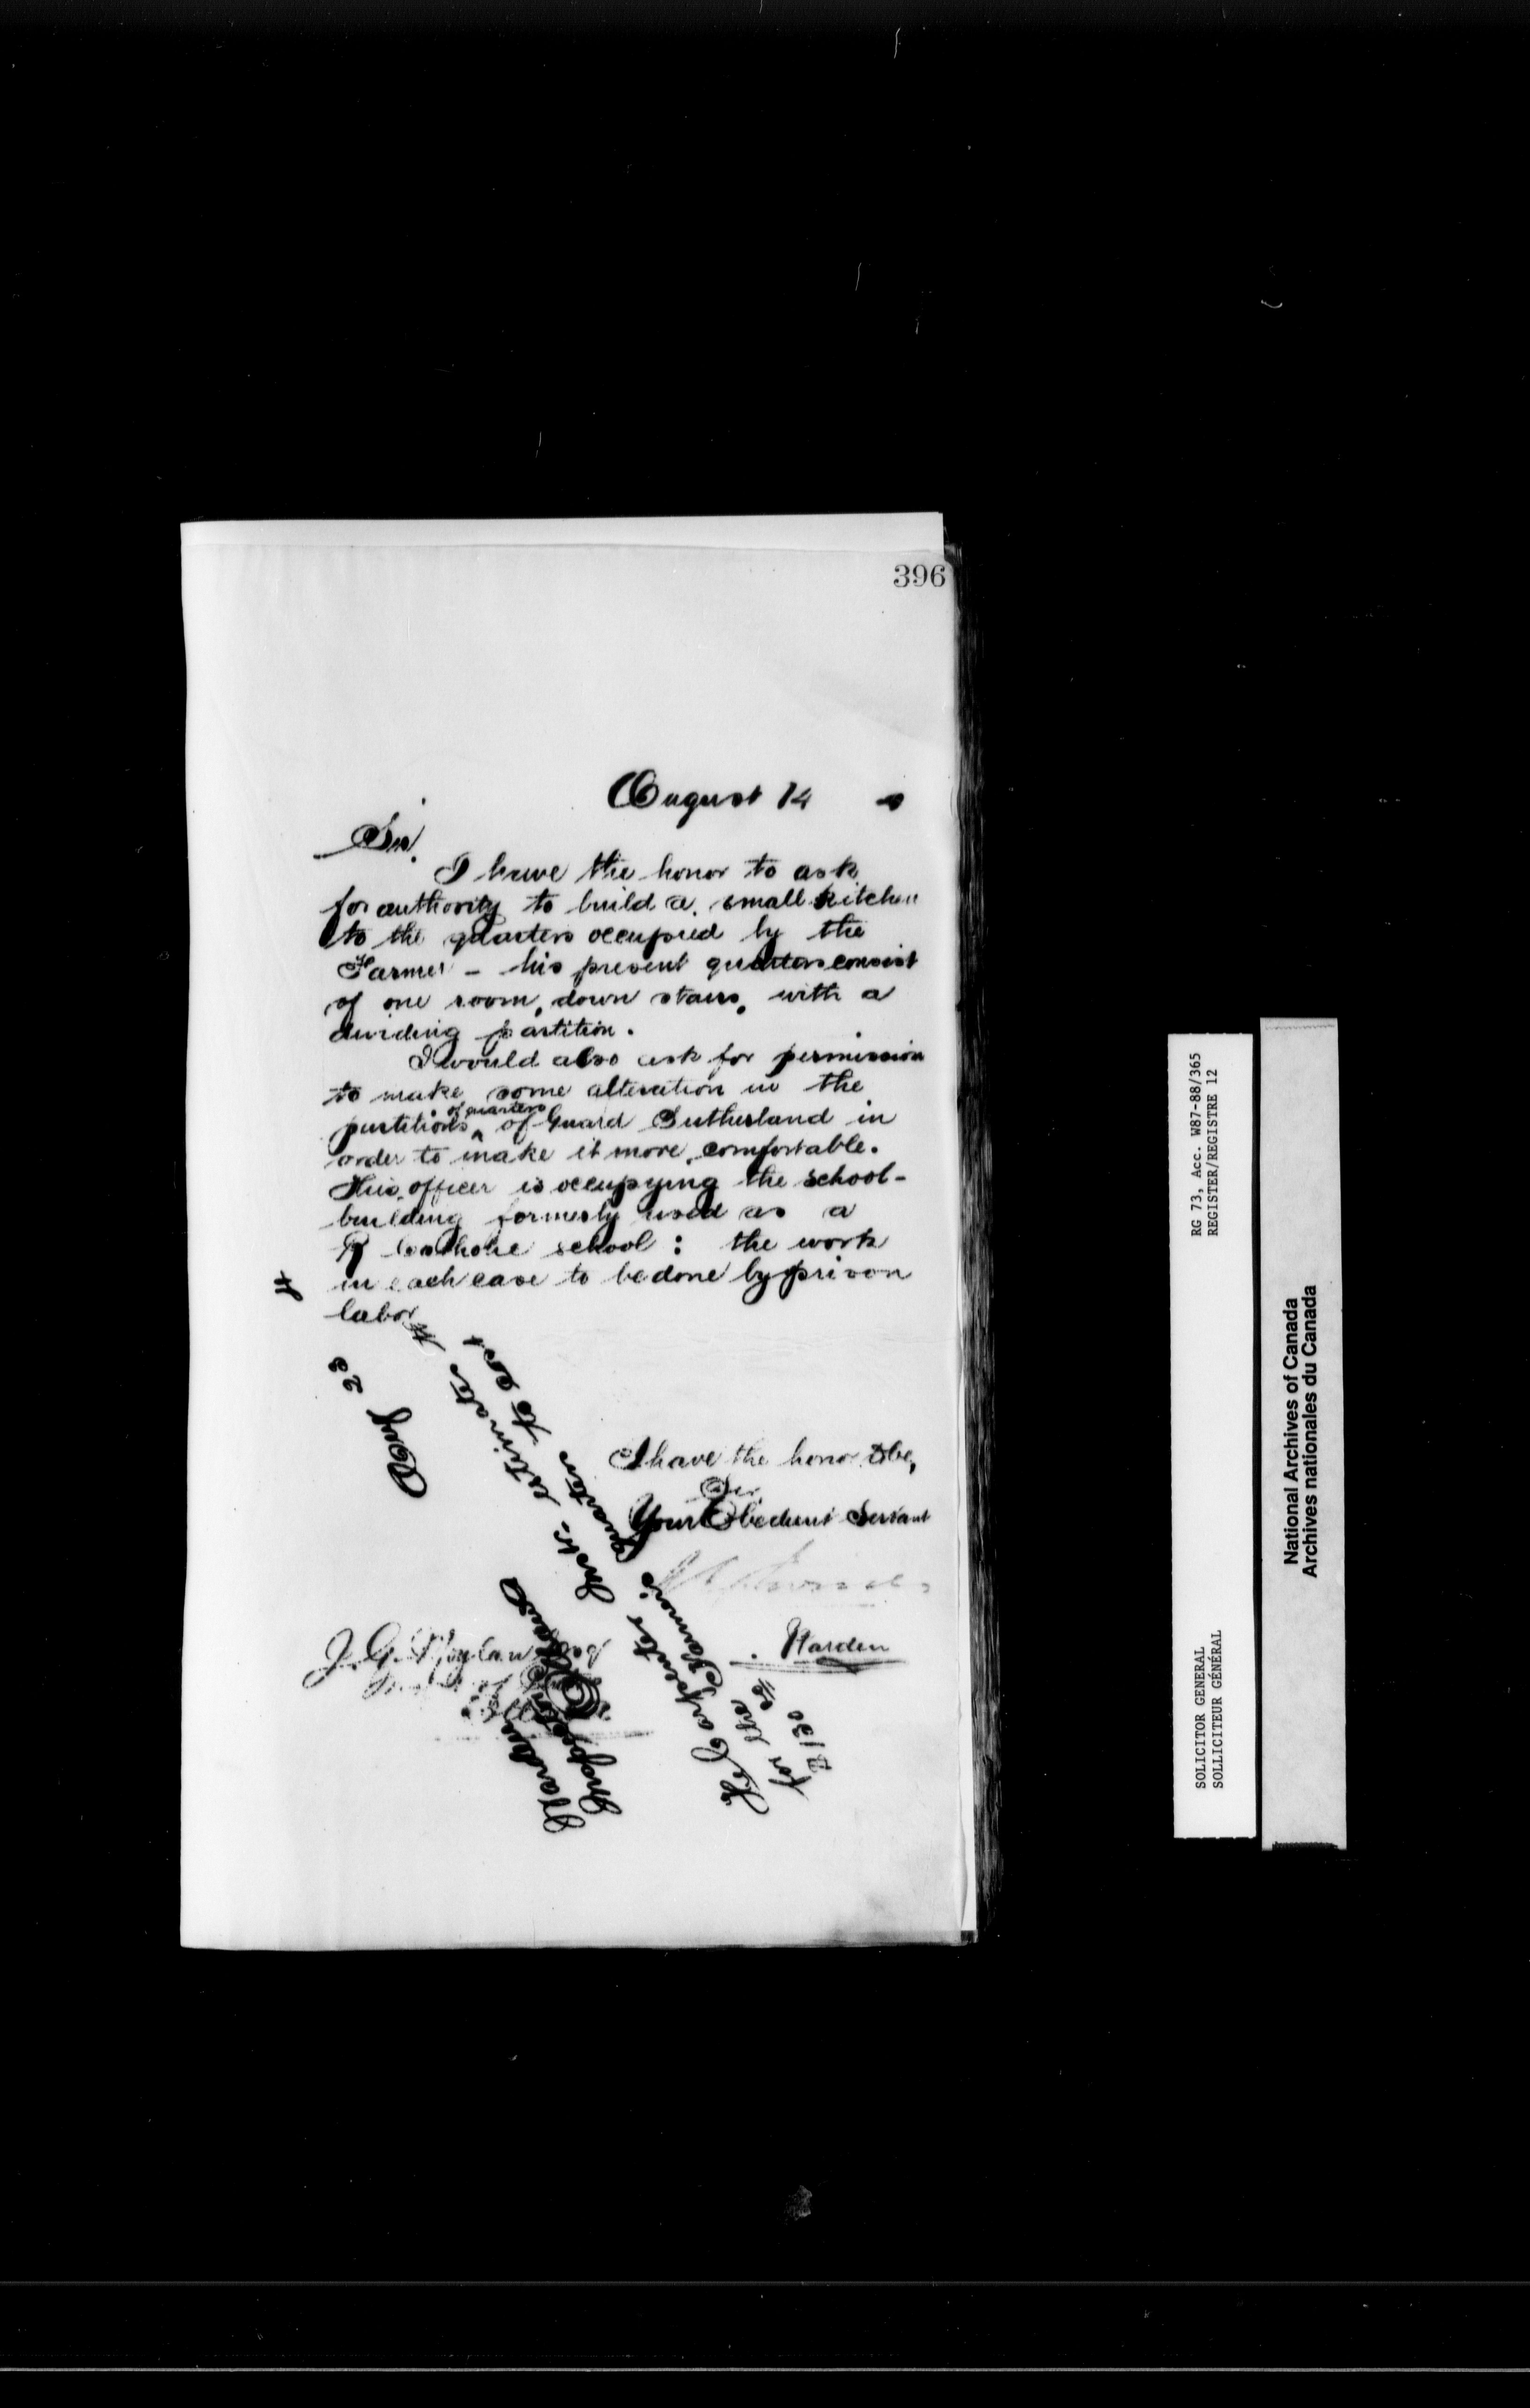 396
August 14
Sir.
I have the honor to ask
for authority to build a small kitchen
to the quarters occupied by the
Farmer - his present quarters consist
of one room, down stairs, with a
dividing partition.
I would also ask for permission
to make some alteration in the
of quarters
partitions ^ of Guard Sutherland in
order to make it more comfortable.
This officer is occupying the school-
building formerly used as a
R Catholic school: the work
in each case to be done by prison
labor
I have the honor to be,
Sir
Your Obedient Servant
Warden
J. G. Moylan Esq
Aug 23
Inspector
The Carpenter Instr. estimates
for the Farmer's quarters to cost
$130
RG 73, Acc. W87-88/365
REGISTER/REGISTRE 12
SOLICITOR GENERAL
SOLLICITEUR GÉNÉRAL
National Archives of Canada
Archives nationales du Canada